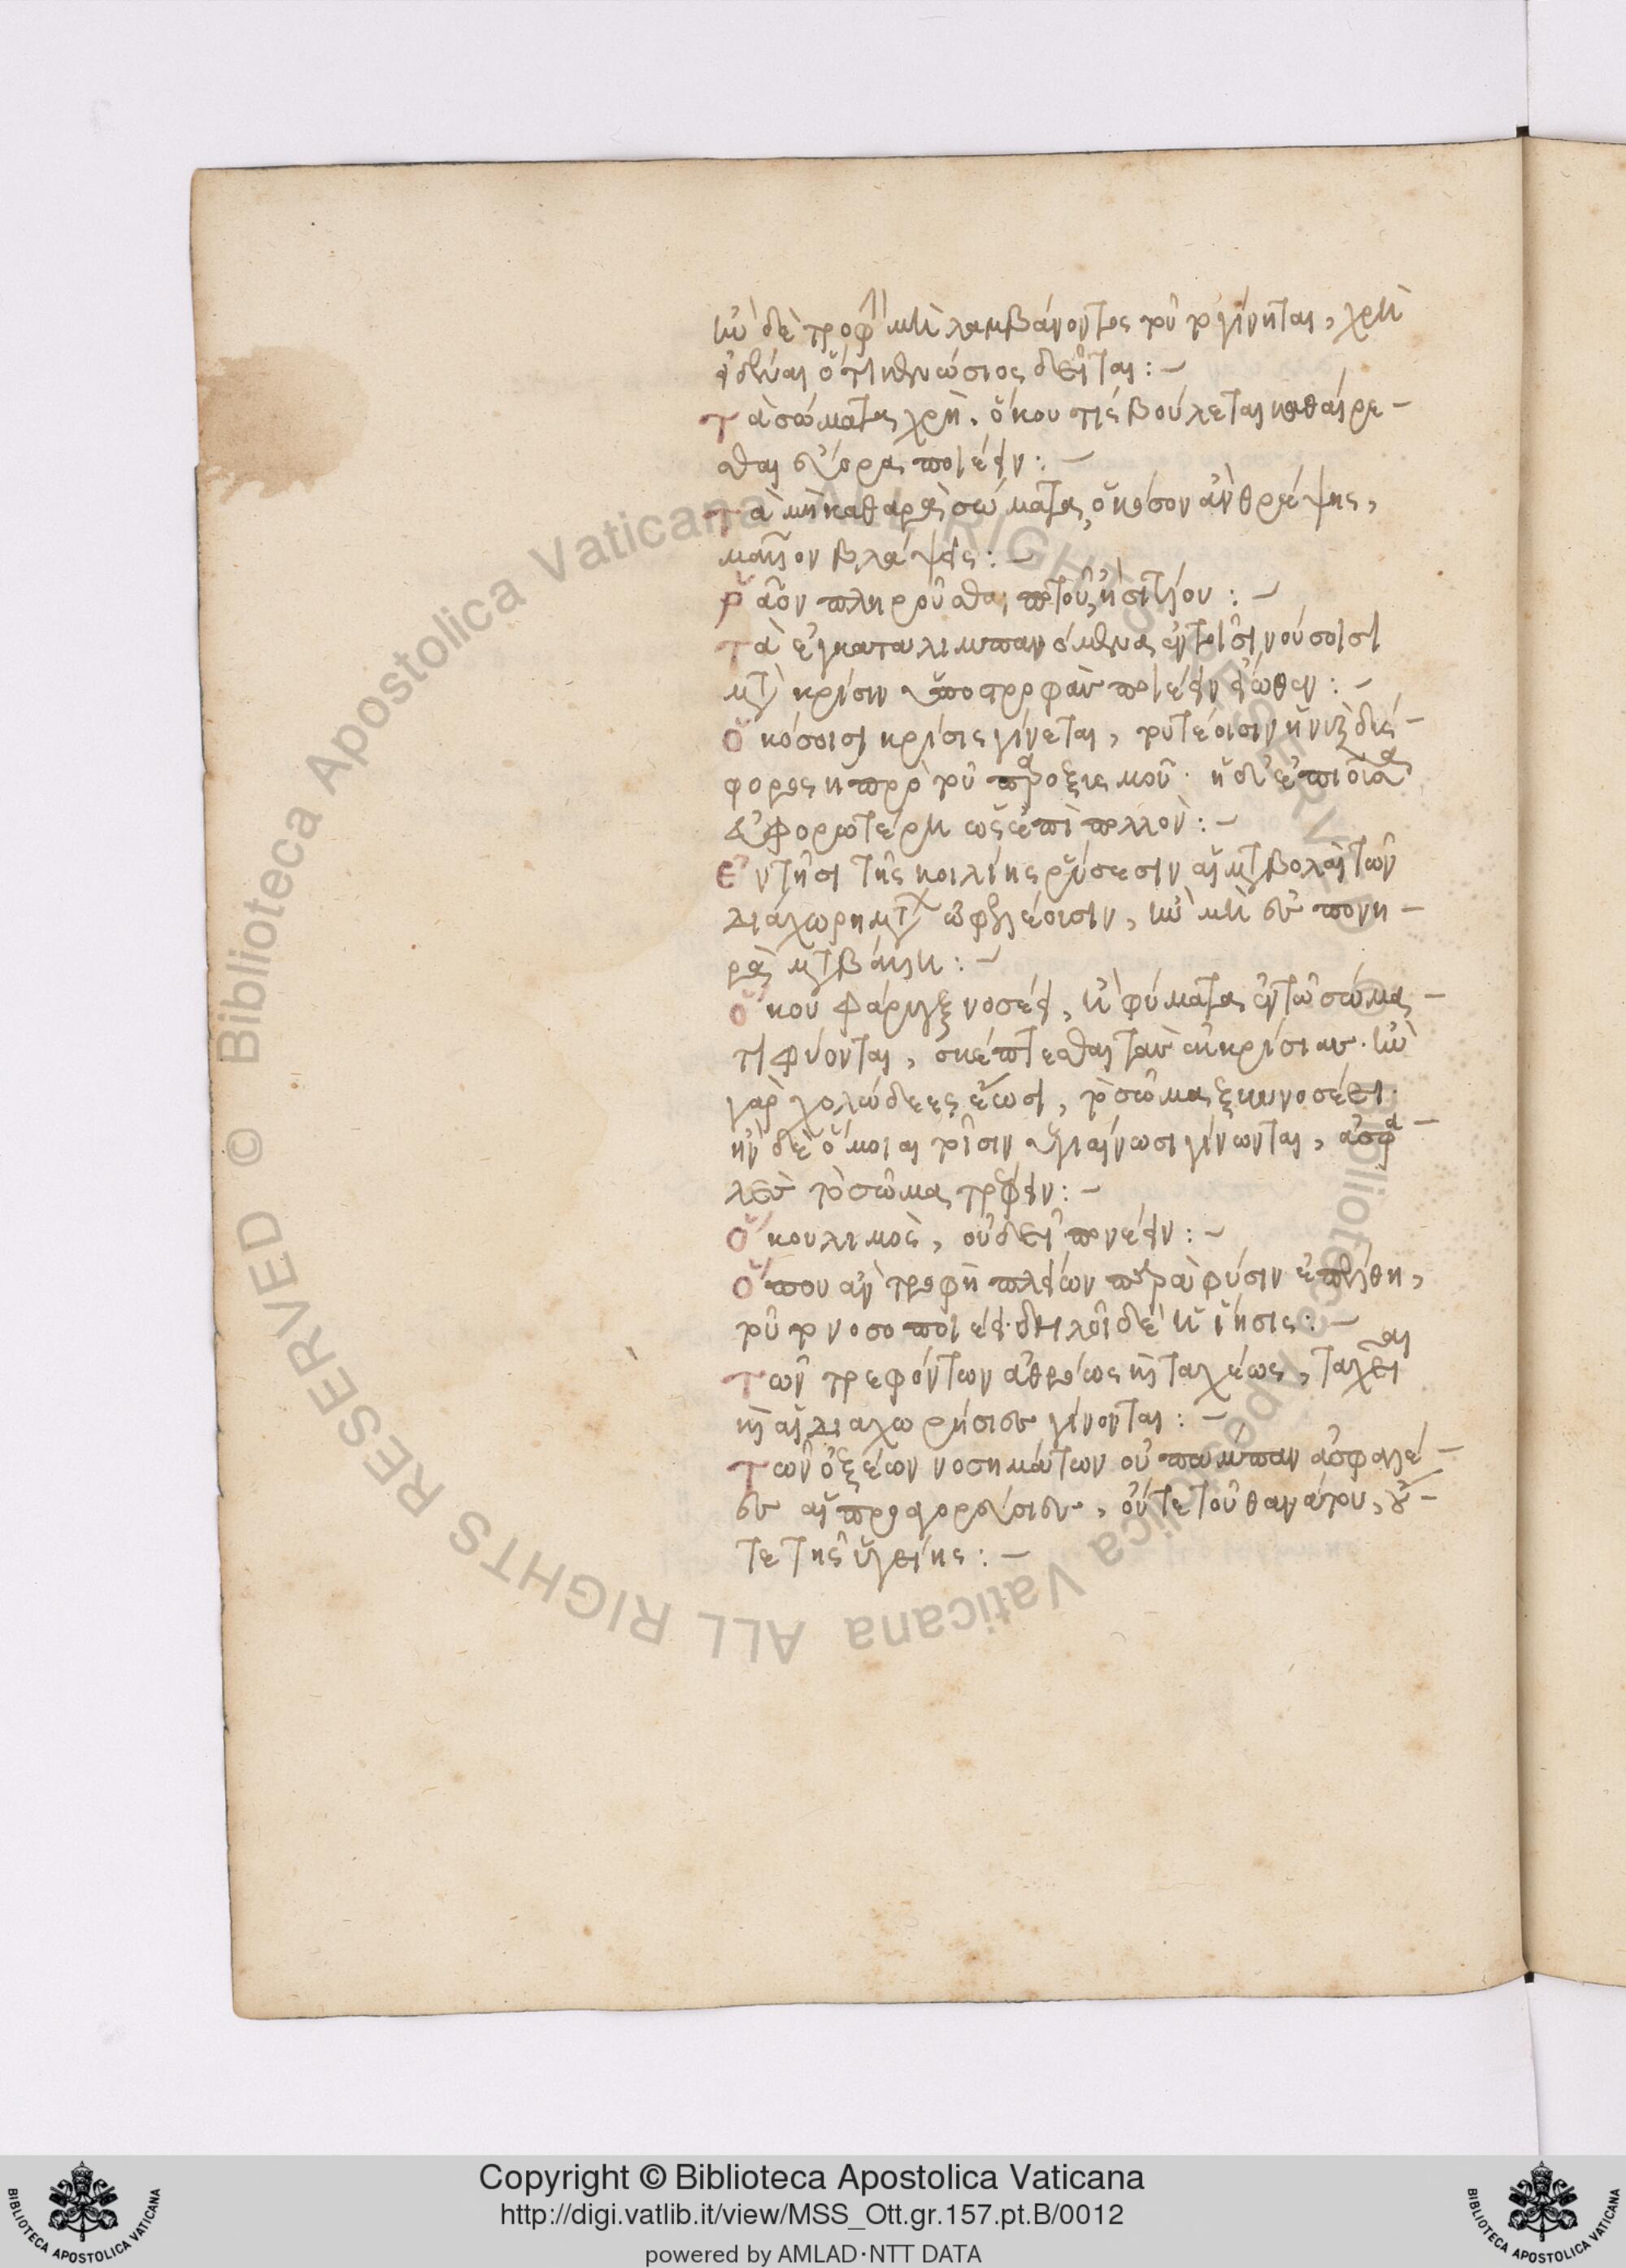 ἢν δὲ τροφὴν μὴ λαμβάνοντος τοῦτο γίνηται, χρὴ
εἰδέναι ὅτι κενώσιος δεῖται :-
τὰ σώματα χρὴ, ὅκου τις βούλεται καθαίρε-
σθαι εὔροα ποιέειν :-
τὰ μὴ καθαρὰ σώματα, ὁκόσον ἂν θρέψης,
μᾶλλον βλάψεις :-
ῥᾶον πληροῦσθαι ποτοῦ, ἢ σιτίου :-
τὰ ἐγκαταλιμπανόμενα ἐν τοῖσι νούσοισι
μετὰ κρίσιν ὑποστροφὰς ποιέειν εἴωθεν :-
ὁκόσοισι κρίσις γίνεται, τουτέοισιν ἡ νὺξ δύσ-
φορος ἡ πρὸ τοῦ παροξυσμοῦ. ἡ δ' ἐπιοῦσα
εὐφορωτέρη ὡς ἐπὶ πολλόν :-
ἐν τῆσι τῆς κοιλίης ῥύσεσιν αἱ μεταβολαὶ τῶν
διαχωρημάτων ὠφελέουσιν, ἢν μὴ ἐς πονη-
ρὰ μεταβάλλη :-
ὅκου φάρυγξ νοσέει, ἢ φύματα ἐν τῶ σώμα-
τι φύονται, σκέπτεσθαι τὰς ἐκκρίσιας. ἢν
γὰρ χολώδεες ἔωσι, τὸ σῶμα ξυννοσέει.
ἢν δὲ ὅμοιαι τοῖσιν ὑγιαίνωσι γίνωνται, ἀσφα-
λὲς τὸ σῶμα τρέφειν :-
ὅκου λιμὸς, οὐ δεῖ πονέειν :-
ὅπου ἂν τροφὴ πλείων παρὰ φύσιν ἐσέλθη,
τοῦτο νοσοποιέει. δηλοῖ δὲ ἡ ἴησις :-
τῶν τρεφόντων ἀθρόως καὶ ταχέως, ταχεῖαι
καὶ αἱ διαχωρήσιες γίνονται :-
τῶν ὀξέων νοσημάτων οὐ πάμπαν ἀσφαλέ-
ες αἱ προαγορεύσιες, οὔτε τοῦ θανάτου, οὔ-
τε τῆς ὑγείης :-
Copyright © Biblioteca Apostolica Vaticana
http://digi.vatlib.it/view/MSS_Ott.gr.157.pt.B/0012
powered by AMLAD·NTT DATA
BIBLIOTECA APOSTOLICA VATICANA
BIBLIOTECA APOSTOLICA VATICANA
© Biblioteca Apostolica Vaticana ALL RIGHTS RESERVED
© Biblioteca Apostolica Vaticana ALL RIGHTS RESERVED